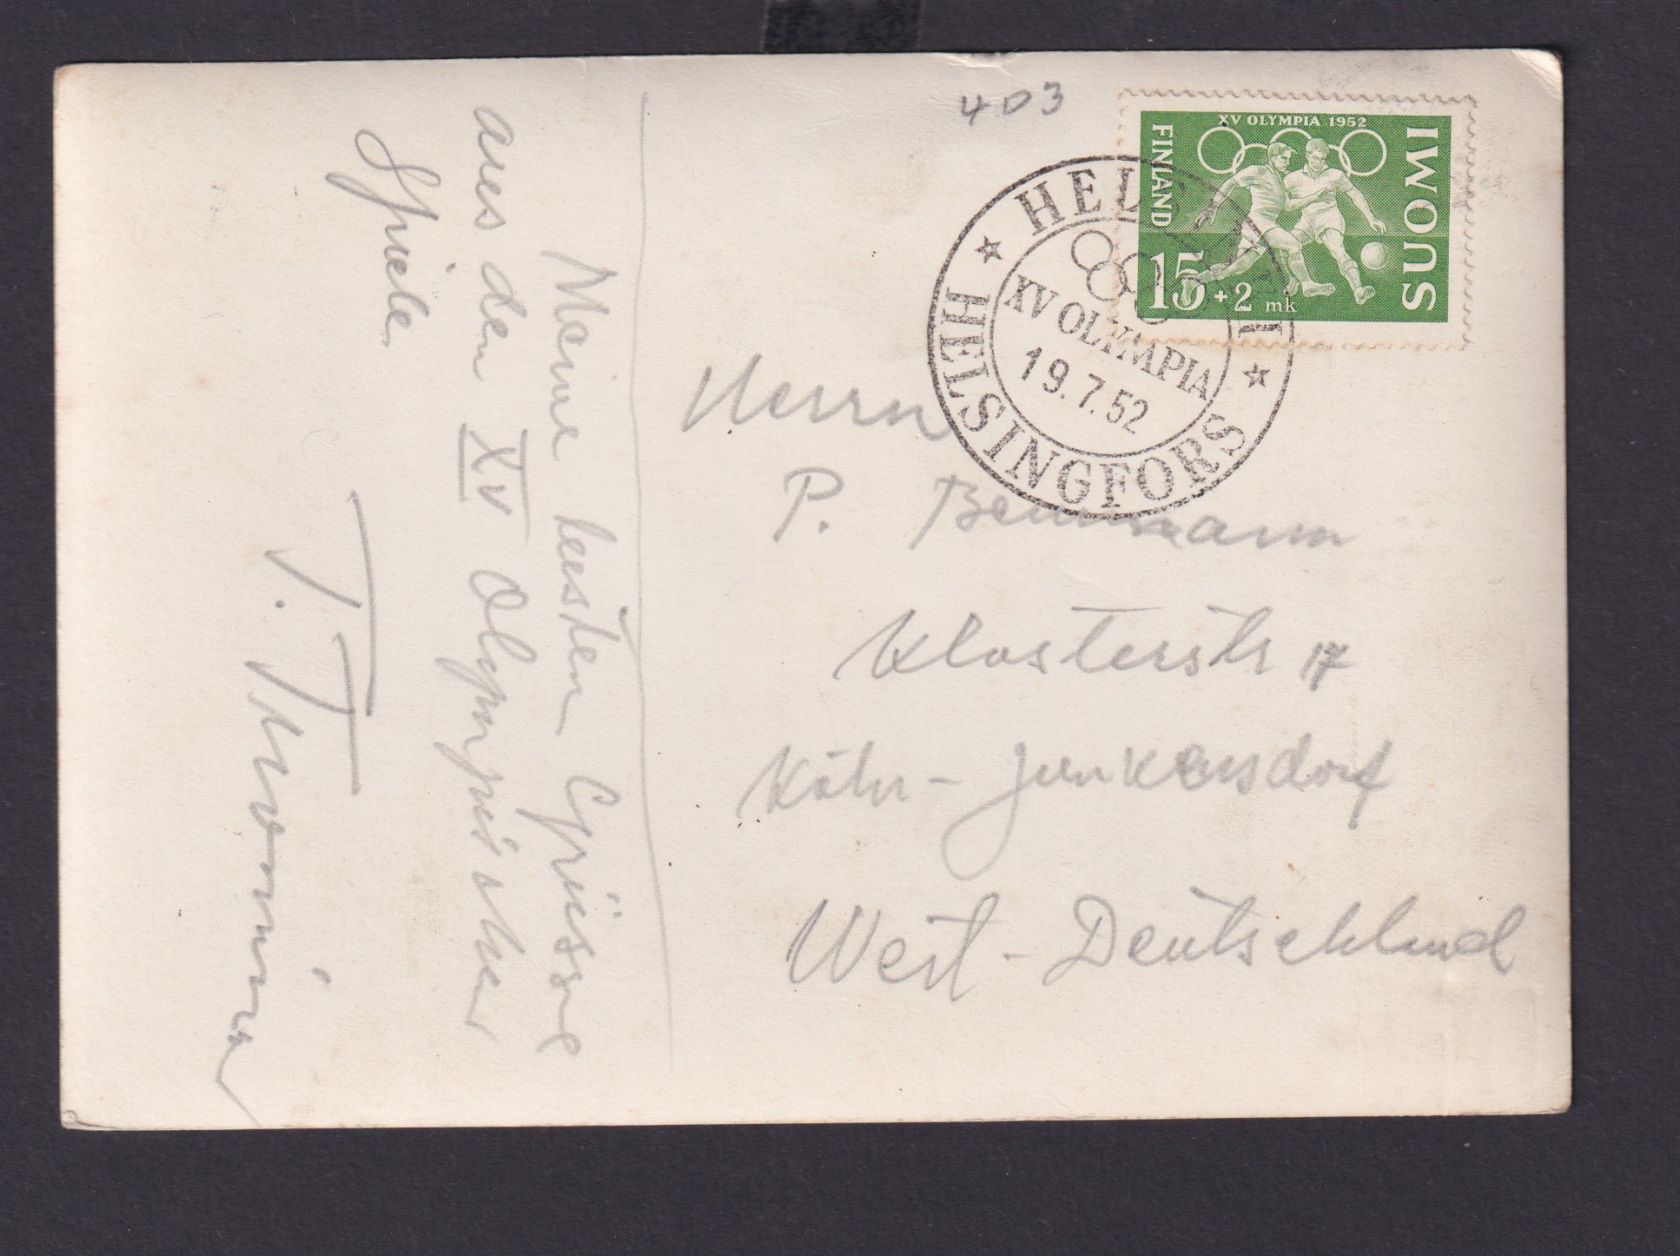 403
XV OLYMPIA 1952
FINLAND
SUOMI
15 + 2 mk
HELSINKI
XV OLYMPIA
19.7.52
HELSINGFORS
Meine besten Grüsse
aus den XV Olympischen
Spiele
Herrn
P.
Klosterstr 17
Köln - Junkersdorf
West - Deutschland